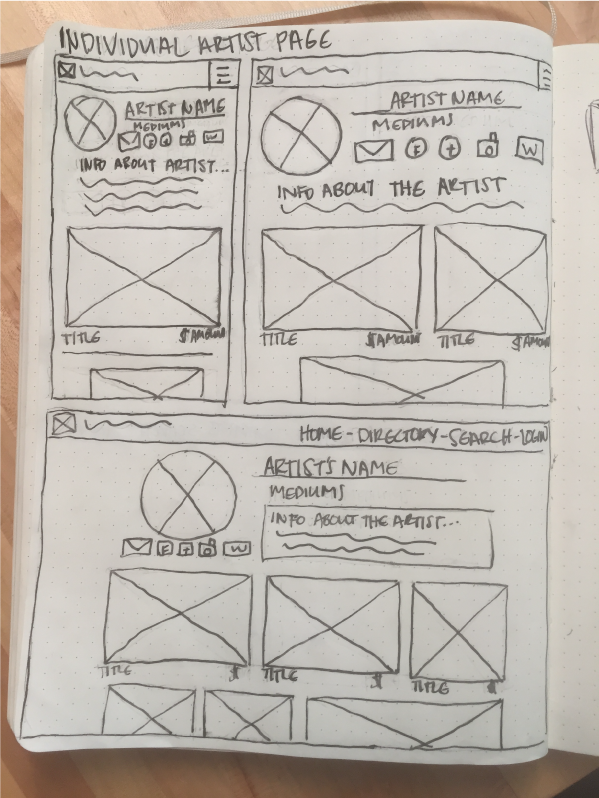 INDIVIDUAL ARTIST PAGE
ARTIST NAME
MEDIUMS
F t W
INFO ABOUT ARTIST...
TITLE $AMOUNT
ARTIST NAME
MEDIUMS
F t W
INFO ABOUT THE ARTIST
TITLE $AMOUNT TITLE $AMOUNT
HOME-DIRECTORY-SEARCH-LOGIN
ARTIST'S NAME
MEDIUMS
INFO ABOUT THE ARTIST...
F t W
TITLE $ TITLE $ TITLE $